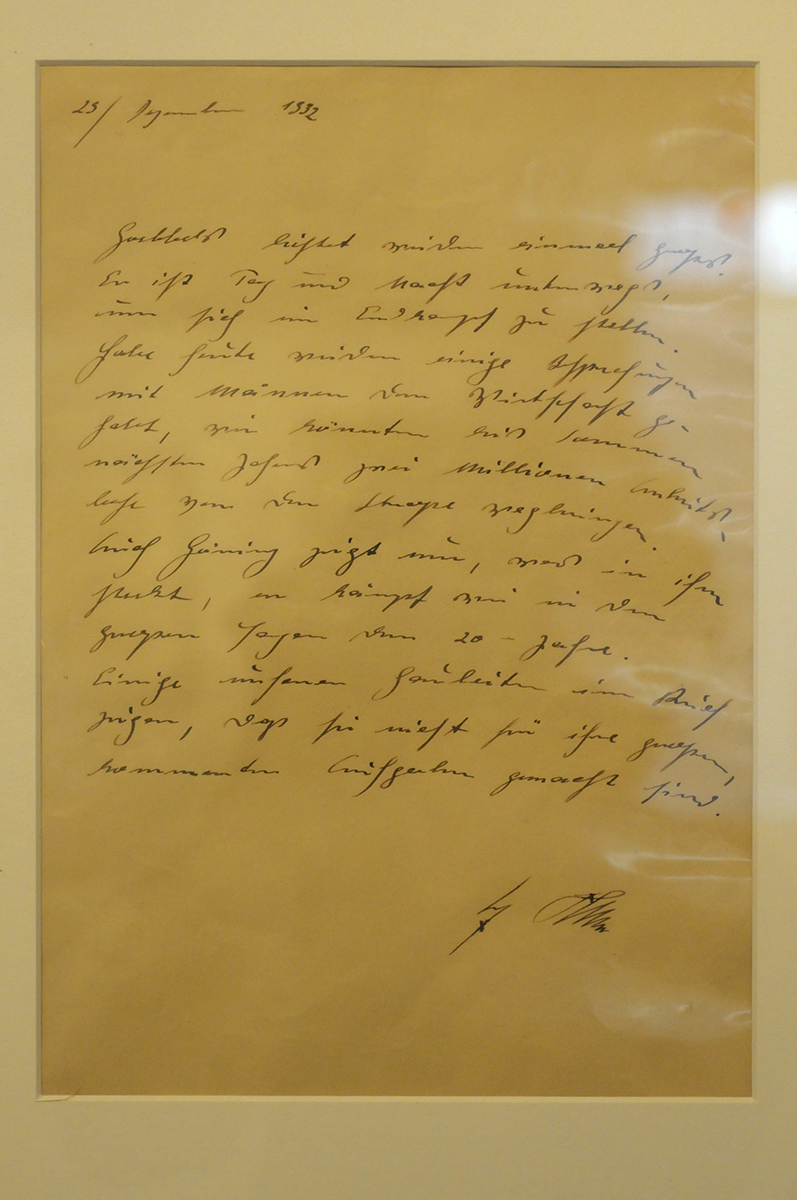 29/ Dezember 1932
Goebbels leistet wieder einmal großes.
Er ist Tag und Nacht unterwegs,
um sich im Endkampf zu stellen.
Habe heute wieder einige Besprechungen
mit Männern der Wirtschaft ge-
habt, wir könnten bis Sommer
nächsten Jahres zwei Millionen Arbeits-
lose von der Strape wegbringen.
Auch Göring zeigt nun, was in ihm
steckt, er kämpf wie in den
großen Tagen der 20 - Jahre.
Einige unserer Gauleiter im Brief
zeigen, daß sie nicht für ihre großen,
kommenden Aufgaben gemacht sind.